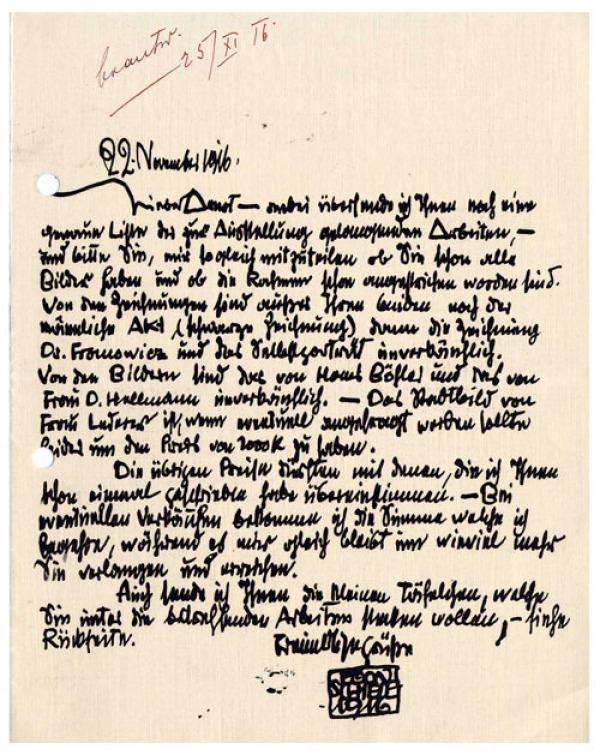 beantw.
25/XI 16.
22. November 1916.
Lieber Arnot – anbei übersende ich Ihnen noch eine
genaue Liste der zur Ausstellung gelangenden Arbeiten, –
und bitte Sie, mir sogleich mitzuteilen ob Sie schon alle
Bilder haben und ob die Rahmen schon angestrichen worden sind.
Von den Zeichnungen sind außer Ihren beiden noch der
männliche Akt (schwarze Zeichnung) dann die Zeichnung
Dr. Fromowicz und das Selbstportrait unverkäuflich.
Von den Bildern sind das von Hans Böhler und das von
Frau D. unverkäuflich. – Das Stadtbild von
Frau Lederer ist, wenn eventuell angefragt werden sollte
leider um den Preis von 2000 K zu haben.
Die übrigen Preise dürften mit denen, die ich Ihnen
schon einmal geschrieben habe übereinstimmen. – Bei
eventuellen Verkäufen bekomme ich die Summe welche ich
begehre, während es mir gleich bleibt um wieviel mehr
Sie verlangen und erreichen.
Auch sende ich Ihnen die kleinen Täfelchen, welche
Sie unter die betreffenden Arbeiten stecken wollen, – siehe
Rückseite.
Freundliche Grüße
EGON
SCHIELE
1916